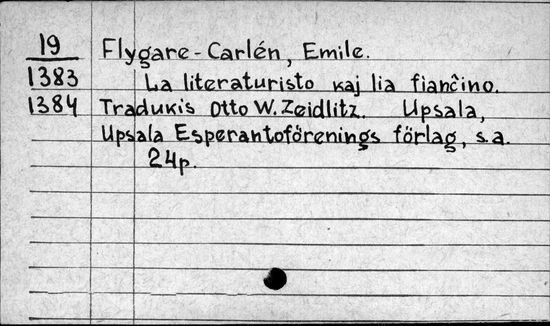 19 Flygare-Carlén, Emile.
1383 La literaturisto kaj lia fianĉino.
1384 Tradukis Otto W. Zeidlitz. Upsala,
Upsala Esperantoförenings förlag, s.a.
24p.